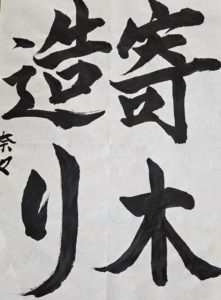 寄木
造り
奈々